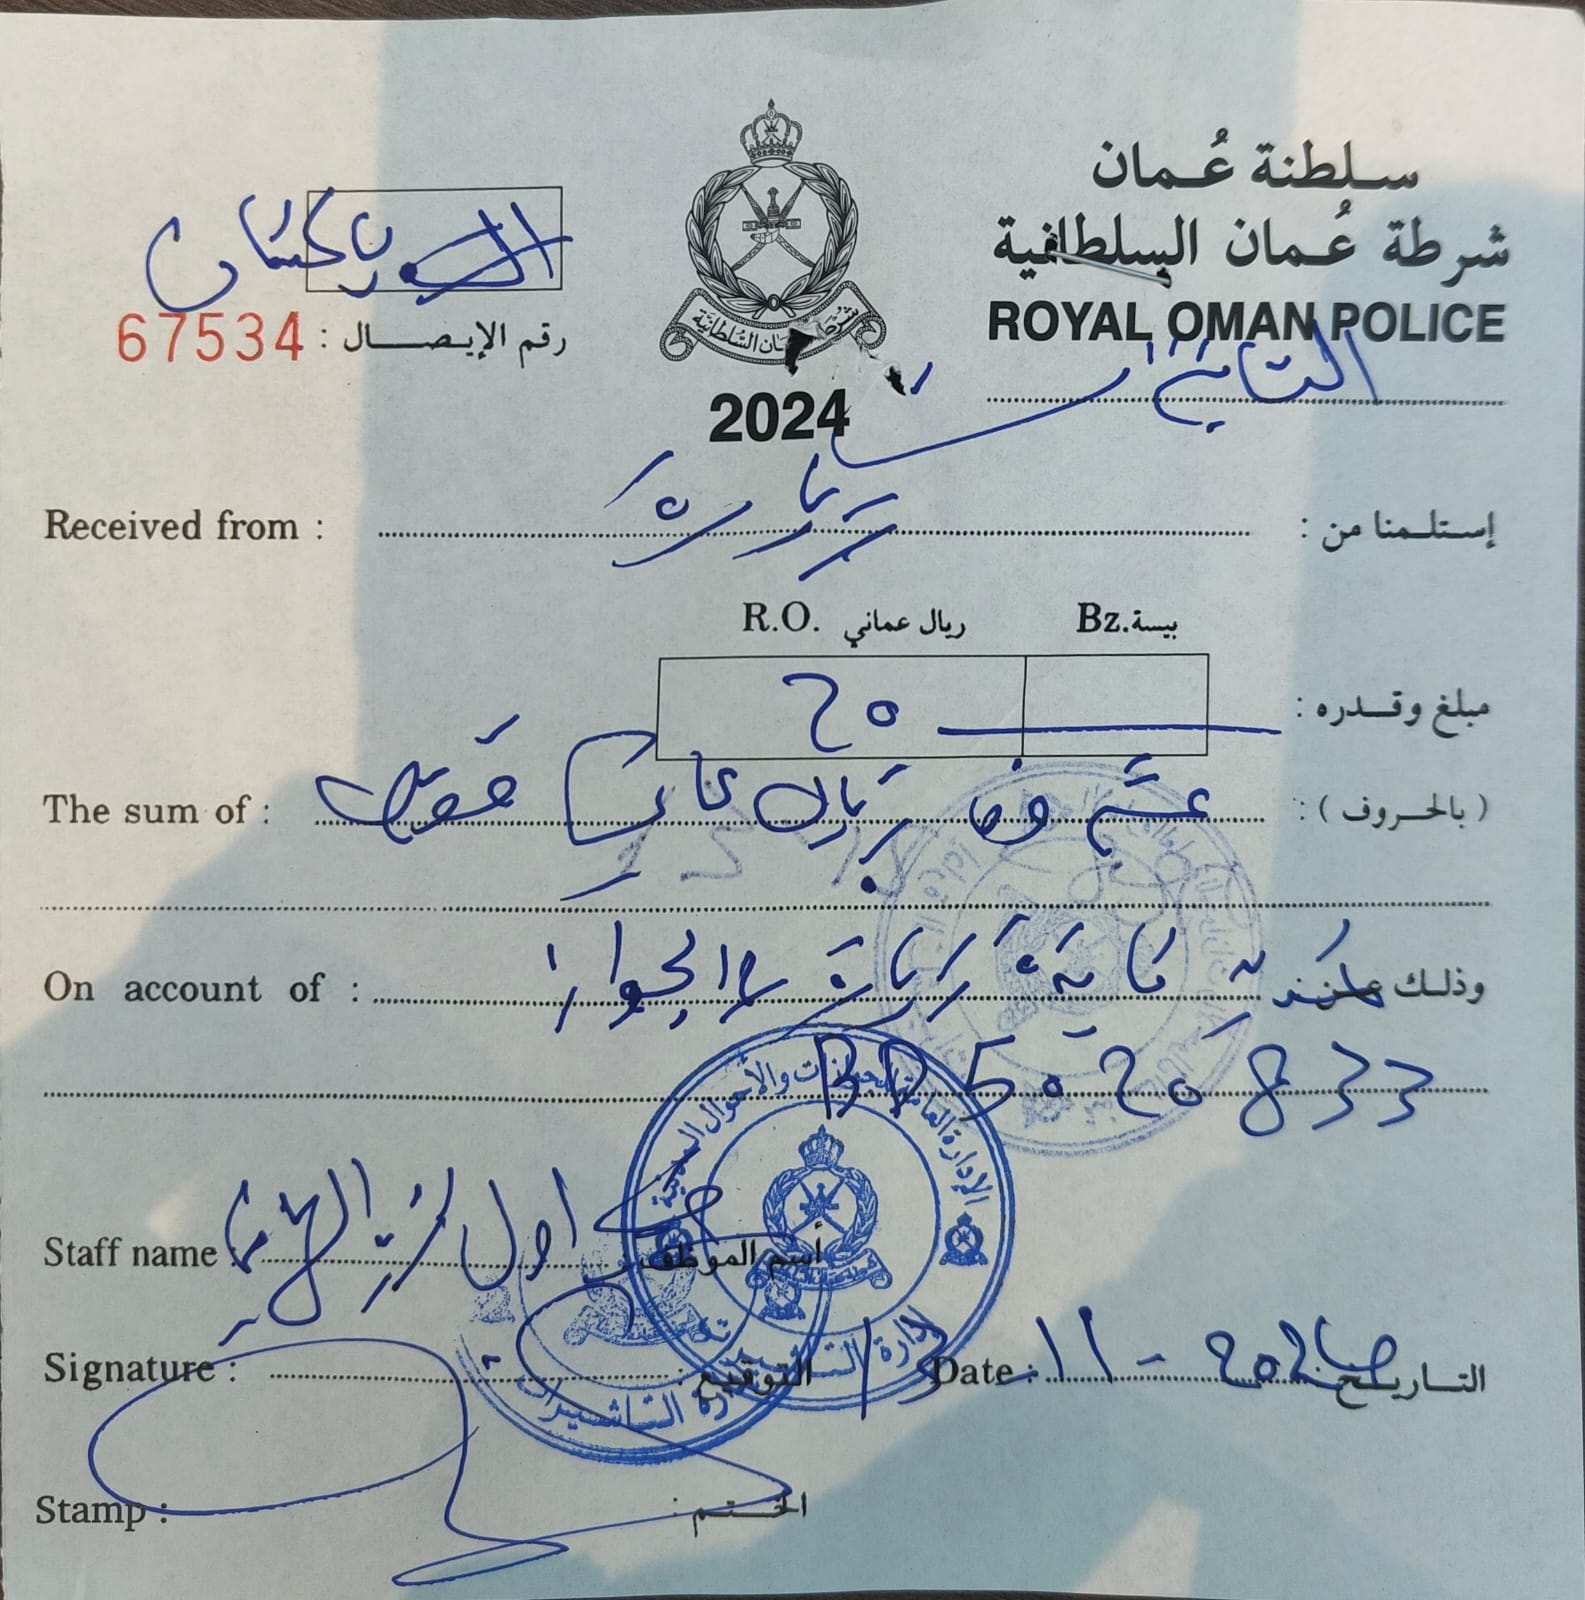 سلطنة عُمان
شرطة عُمان السلطانية
ROYAL OMAN POLICE
باكستان
رقم الإيصال : 67534
شرطة عمان السلطانية
2024
زيارة
Received from : إستلمنا من :
R.O. ريال عماني Bz. بيسة
مبلغ وقدره : 20
The sum of : عشرون ريال عماني فقط ( بالحروف ) :
On account of : زيارة الجواز وذلك عن
BP5020833
الإدارة العامة للجوازات والأحوال المدنية
Staff name : أسم الموظف : اول
Signature : التوقيع :
Date : 11 - 2024 التاريخ
إدارة التأشيرات
Stamp : الختم :